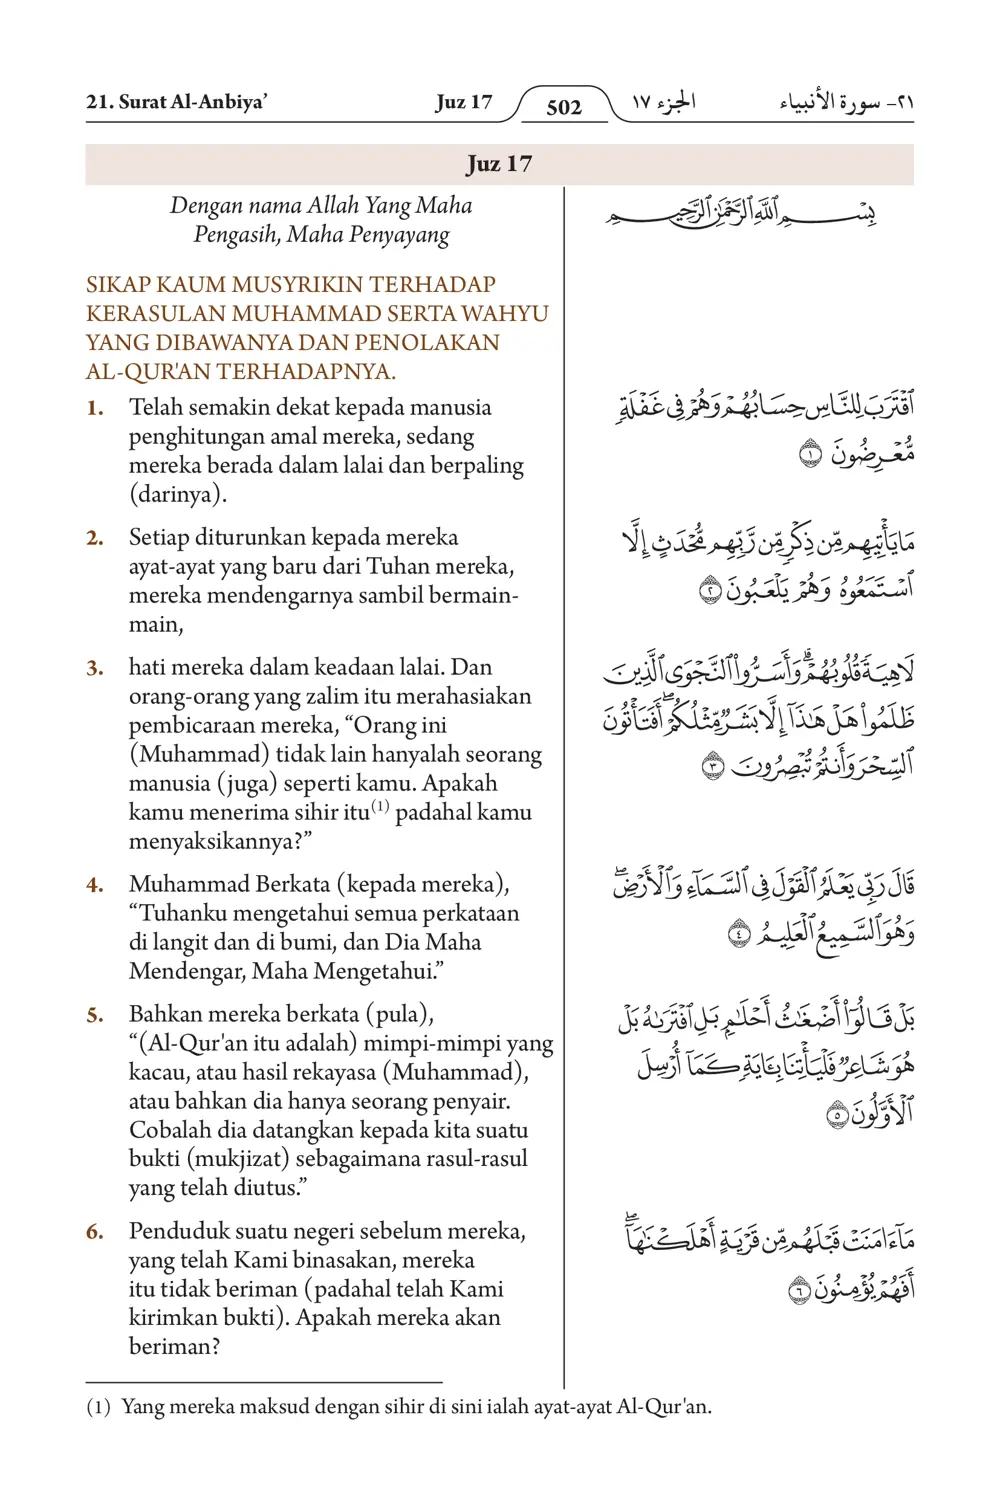 21. Surat Al-Anbiya’ Juz 17 502 الجزء ١٧ ٢١- سورة الأنبياء
Juz 17
Dengan nama Allah Yang Maha
Pengasih, Maha Penyayang
SIKAP KAUM MUSYRIKIN TERHADAP
KERASULAN MUHAMMAD SERTA WAHYU
YANG DIBAWANYA DAN PENOLAKAN
AL-QUR'AN TERHADAPNYA.
1. Telah semakin dekat kepada manusia
penghitungan amal mereka, sedang
mereka berada dalam lalai dan berpaling
(darinya).
2. Setiap diturunkan kepada mereka
ayat-ayat yang baru dari Tuhan mereka,
mereka mendengarnya sambil bermain-
main,
3. hati mereka dalam keadaan lalai. Dan
orang-orang yang zalim itu merahasiakan
pembicaraan mereka, “Orang ini
(Muhammad) tidak lain hanyalah seorang
manusia (juga) seperti kamu. Apakah
kamu menerima sihir itu(1) padahal kamu
menyaksikannya?”
4. Muhammad Berkata (kepada mereka),
“Tuhanku mengetahui semua perkataan
di langit dan di bumi, dan Dia Maha
Mendengar, Maha Mengetahui.”
5. Bahkan mereka berkata (pula),
“(Al-Qur'an itu adalah) mimpi-mimpi yang
kacau, atau hasil rekayasa (Muhammad),
atau bahkan dia hanya seorang penyair.
Cobalah dia datangkan kepada kita suatu
bukti (mukjizat) sebagaimana rasul-rasul
yang telah diutus.”
6. Penduduk suatu negeri sebelum mereka,
yang telah Kami binasakan, mereka
itu tidak beriman (padahal telah Kami
kirimkan bukti). Apakah mereka akan
beriman?
بِسْمِ ٱللَّهِ ٱلرَّحْمَٰنِ ٱلرَّحِيمِ
ٱقْتَرَبَ لِلنَّاسِ حِسَابُهُمْ وَهُمْ فِى غَفْلَةٍ
مُّعْرِضُونَ ١
مَا يَأْتِيهِم مِّن ذِكْرٍ مِّن رَّبِّهِم مُّحْدَثٍ إِلَّا
ٱسْتَمَعُوهُ وَهُمْ يَلْعَبُونَ ٢
لَاهِيَةً قُلُوبُهُمْ ۗ وَأَسَرُّوا۟ ٱلنَّجْوَى ٱلَّذِينَ
ظَلَمُوا۟ هَلْ هَٰذَآ إِلَّا بَشَرٌ مِّثْلُكُمْ ۖ أَفَتَأْتُونَ
ٱلسِّحْرَ وَأَنتُمْ تُبْصِرُونَ ٣
قَالَ رَبِّى يَعْلَمُ ٱلْقَوْلَ فِى ٱلسَّمَآءِ وَٱلْأَرْضِ ۖ
وَهُوَ ٱلسَّمِيعُ ٱلْعَلِيمُ ٤
بَلْ قَالُوٓا۟ أَضْغَٰثُ أَحْلَٰمٍۭ بَلِ ٱفْتَرَىٰهُ بَلْ
هُوَ شَاعِرٌ فَلْيَأْتِنَا بِـَٔايَةٍ كَمَآ أُرْسِلَ
ٱلْأَوَّلُونَ ٥
مَآ ءَامَنَتْ قَبْلَهُم مِّن قَرْيَةٍ أَهْلَكْنَٰهَآ ۖ
أَفَهُمْ يُؤْمِنُونَ ٦
(1) Yang mereka maksud dengan sihir di sini ialah ayat-ayat Al-Qur'an.